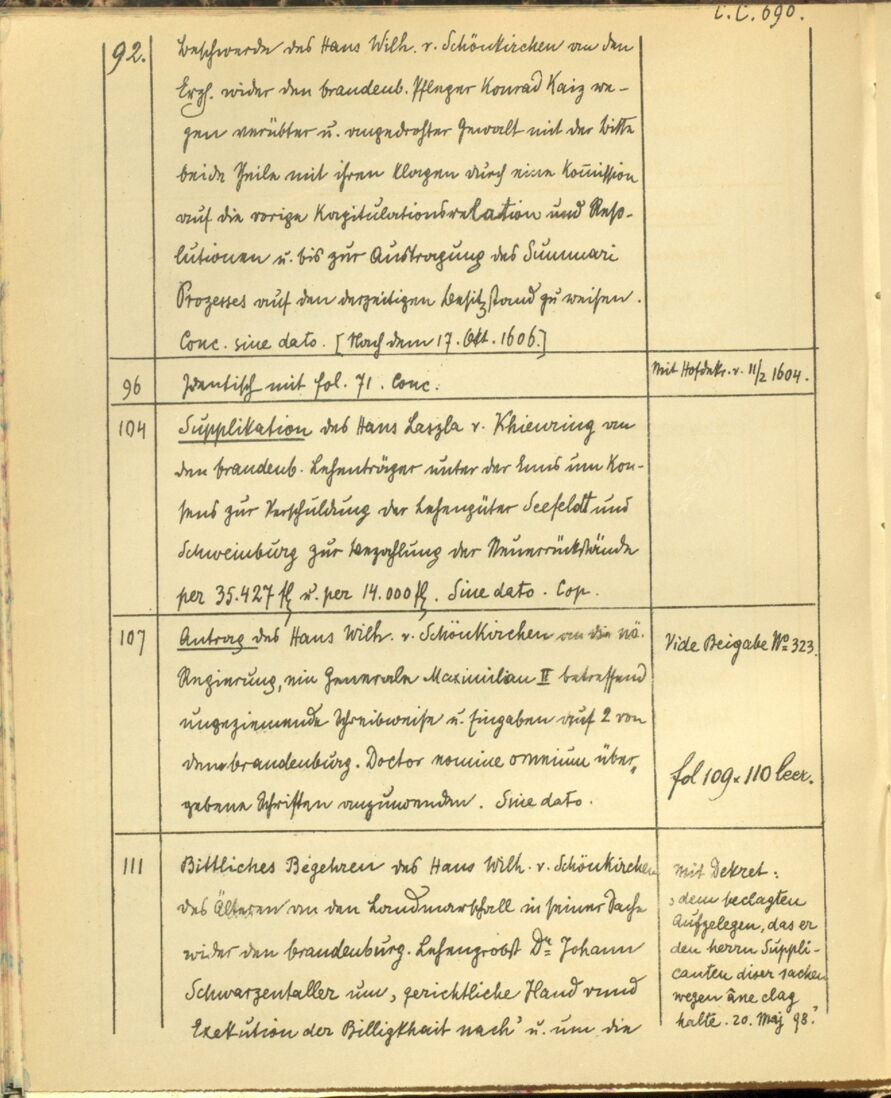 C.C. 690.
92.
Beschwerde des Hans Wilh. v. Schönkirchen an den
Erzh. wider den brandenb. Pfleger Konrad Kaiz we-
gen verübter u. angedrohter Gewalt mit der Bitte
beide Theile mit ihren Klagen durch eine Kom̅ission
auf die vorige Kapitulationsrelation und Reso-
lutionen u. bis zur Austragung des Summari
Prozesses auf den derzeitigen Besitzstand zu weisen.
Conc. sine dato. [Nach dem 17. Okt. 1606.]
96
Identisch mit fol. 71. Conc.
Mit Hofdekr. v. 11/2 1604.
104
Supplikation des Hans Laszla v. Khienring an
den brandenb. Lehenträger unter der Enns um Kon-
sens zur Verschuldung der Lehengüter Seefeldt und
Schweinburg zur Bezahlung der Steuerrückstände
per 35.427 fl u. per 14.000 fl. Sine dato. Cop.
107
Antrag des Hans Wilh. v. Schönkirchen an die nö.
Regierung, ein Generale Maximilian II betreffend
ungeziemende Schreibweise u. Eingaben auf 2 von
dem brandenburg. Doctor nomine omnium über-
gebene Schriften anzuwenden. Sine dato.
Vide Beigabe No 323.
fol 109 x 110 leer.
111
Bittliches Begehren des Hans Wilh. v. Schönkirchen
des Älteren an den Landmarschall in seiner Sache
wider den brandenburg. Lehenprobst Dr Johann
Schwarzentaller um „gerichtliche Hand vnnd
Exekution der Billigkhait nach" u. um die
Mit Dekret:
„dem beclagten
Aufgelegen, das er
den herrn Suppli-
canten diser sachen
wegen âne clag
halte. 20. Maj 98."